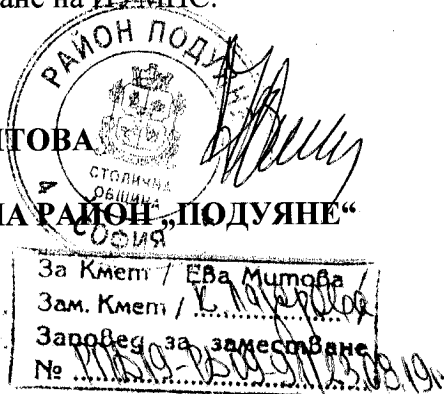 ане на
РАЙОН ПОДУЯНЕ
СТОЛИЧНА
ОБЩИНА
СОФИЯ
ИТОВА
НА РАЙОН „ПОДУЯНЕ“
За Кмет / Ева Митова /
Зам. Кмет /
Заповед за заместване
№